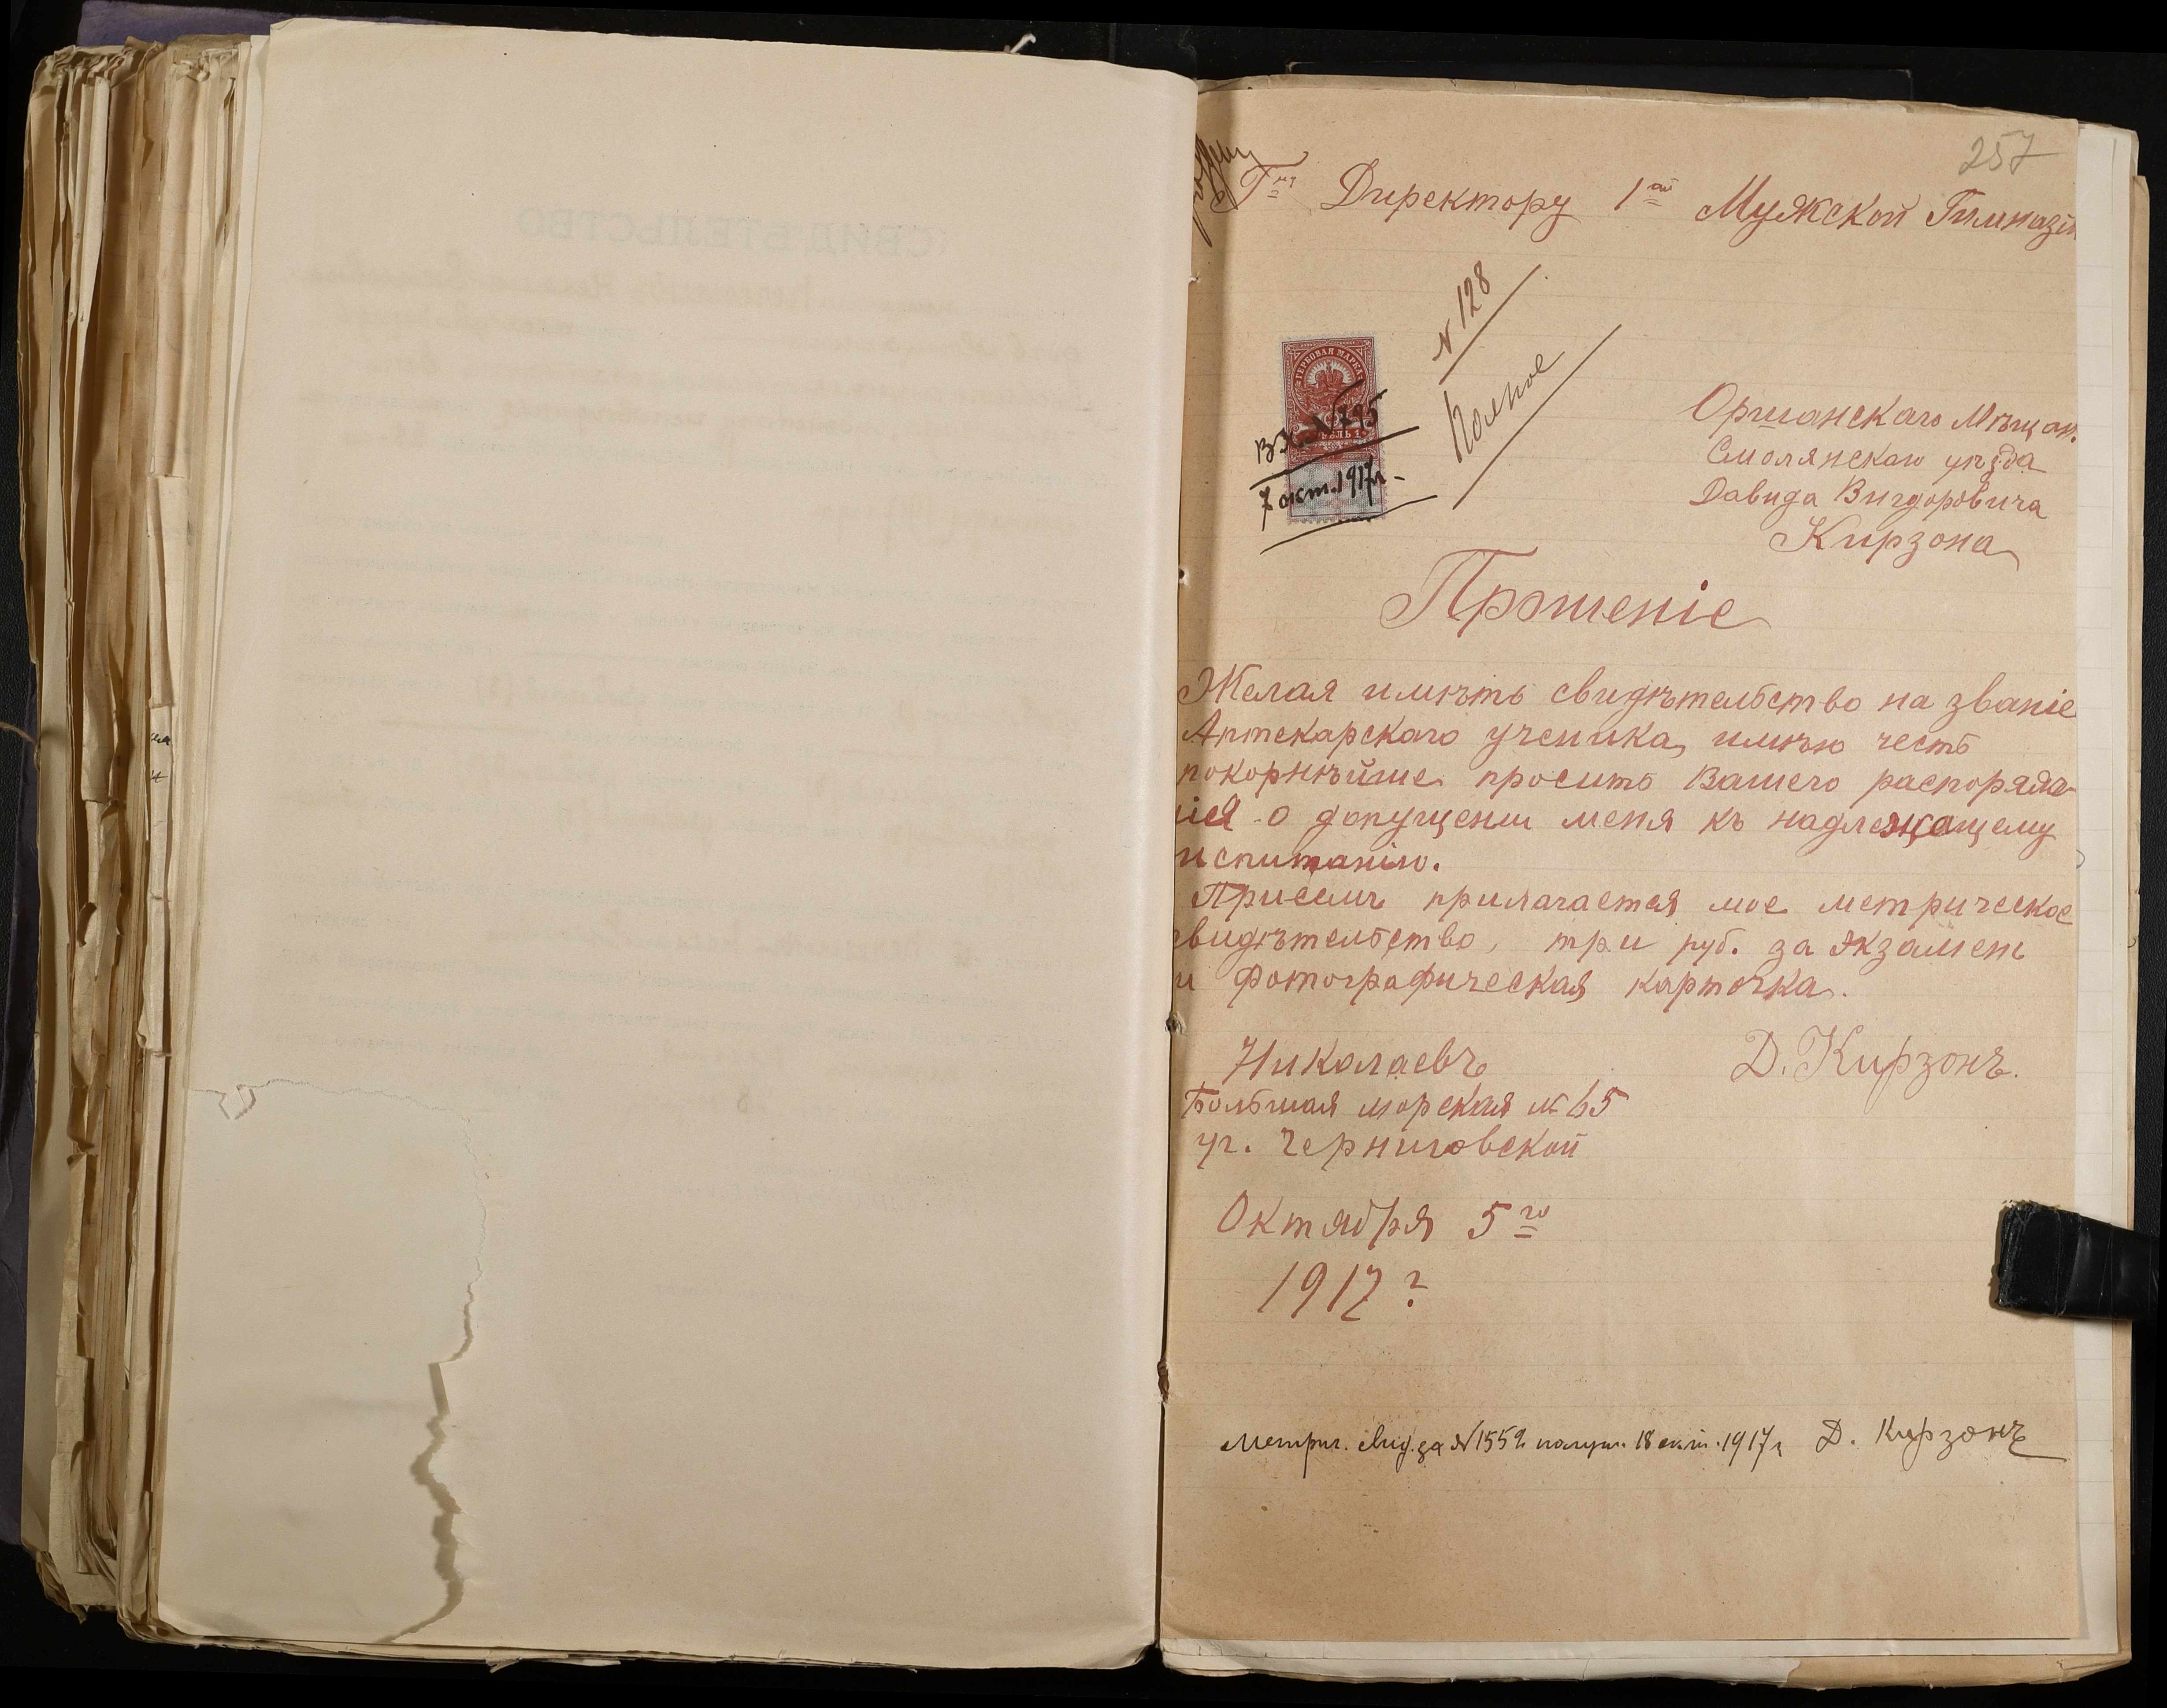 257
Г<sup>ну</sup> Директору 1<sup>ой</sup> Мужской Гимназіи
N 128
Полное
ГЕРБОВАЯ МАРКА
РУБЛЬ 1
Вх. N 795
7 окт. 1917 г.
Оршанскаго Мѣщан.
Смолянскаго уѣзда
Давида Вигдоровича
Кирзона
Прошеніе
Желая имѣть свидѣтельство на званіе
Аптекарскаго ученика, имѣю честь
покорнѣйше просить Вашего распоряже-
нія о допущеніи меня къ надлежащему
испитанію.
Присемъ прилагается мое метрическое
свидѣтельство, три руб. за экзаменъ
и фотографическая карточка.
Николаевъ
Д. Кирзонъ.
Большая морская № 65
уг. Черниговской
Октября 5<sup>го</sup>
1917 г
Метрич. свид. за N 1552 получ. 18 окт. 1917 г Д. Кирзонъ
СВИДѢТЕЛЬСТВО